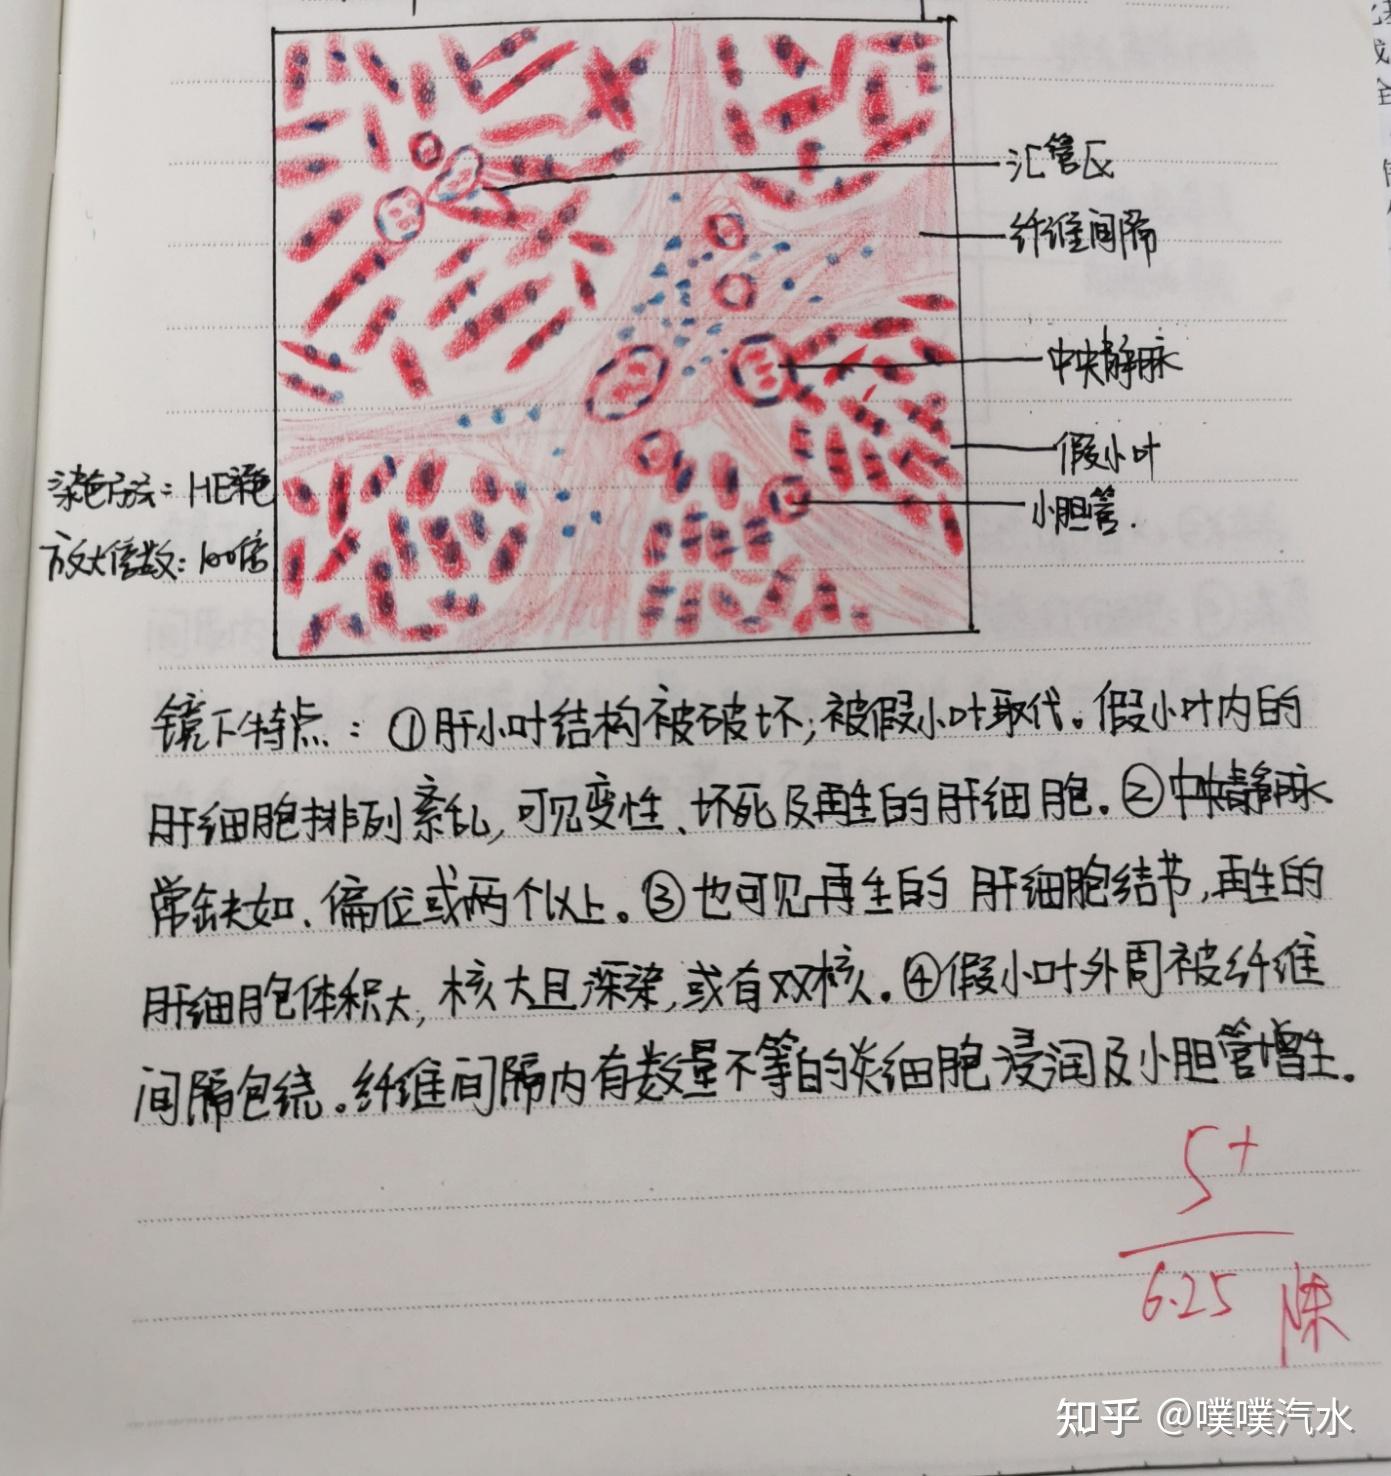 汇管区
纤维间隔
中央静脉
假小叶
小胆管.
染色方法：HE染色
放大倍数：100倍
镜下特点：①肝小叶结构被破坏；被假小叶取代。假小叶内的
肝细胞排列紊乱，可见变性、坏死及再生的肝细胞。②中央静脉
常缺如、偏位或两个以上。③也可见再生的肝细胞结节，再生的
肝细胞体积大，核大且深染，或有双核。④假小叶外周被纤维
间隔包绕。纤维间隔内有数量不等的炎细胞浸润及小胆管增生。
5+
6.25 陈
知乎 @噗噗汽水